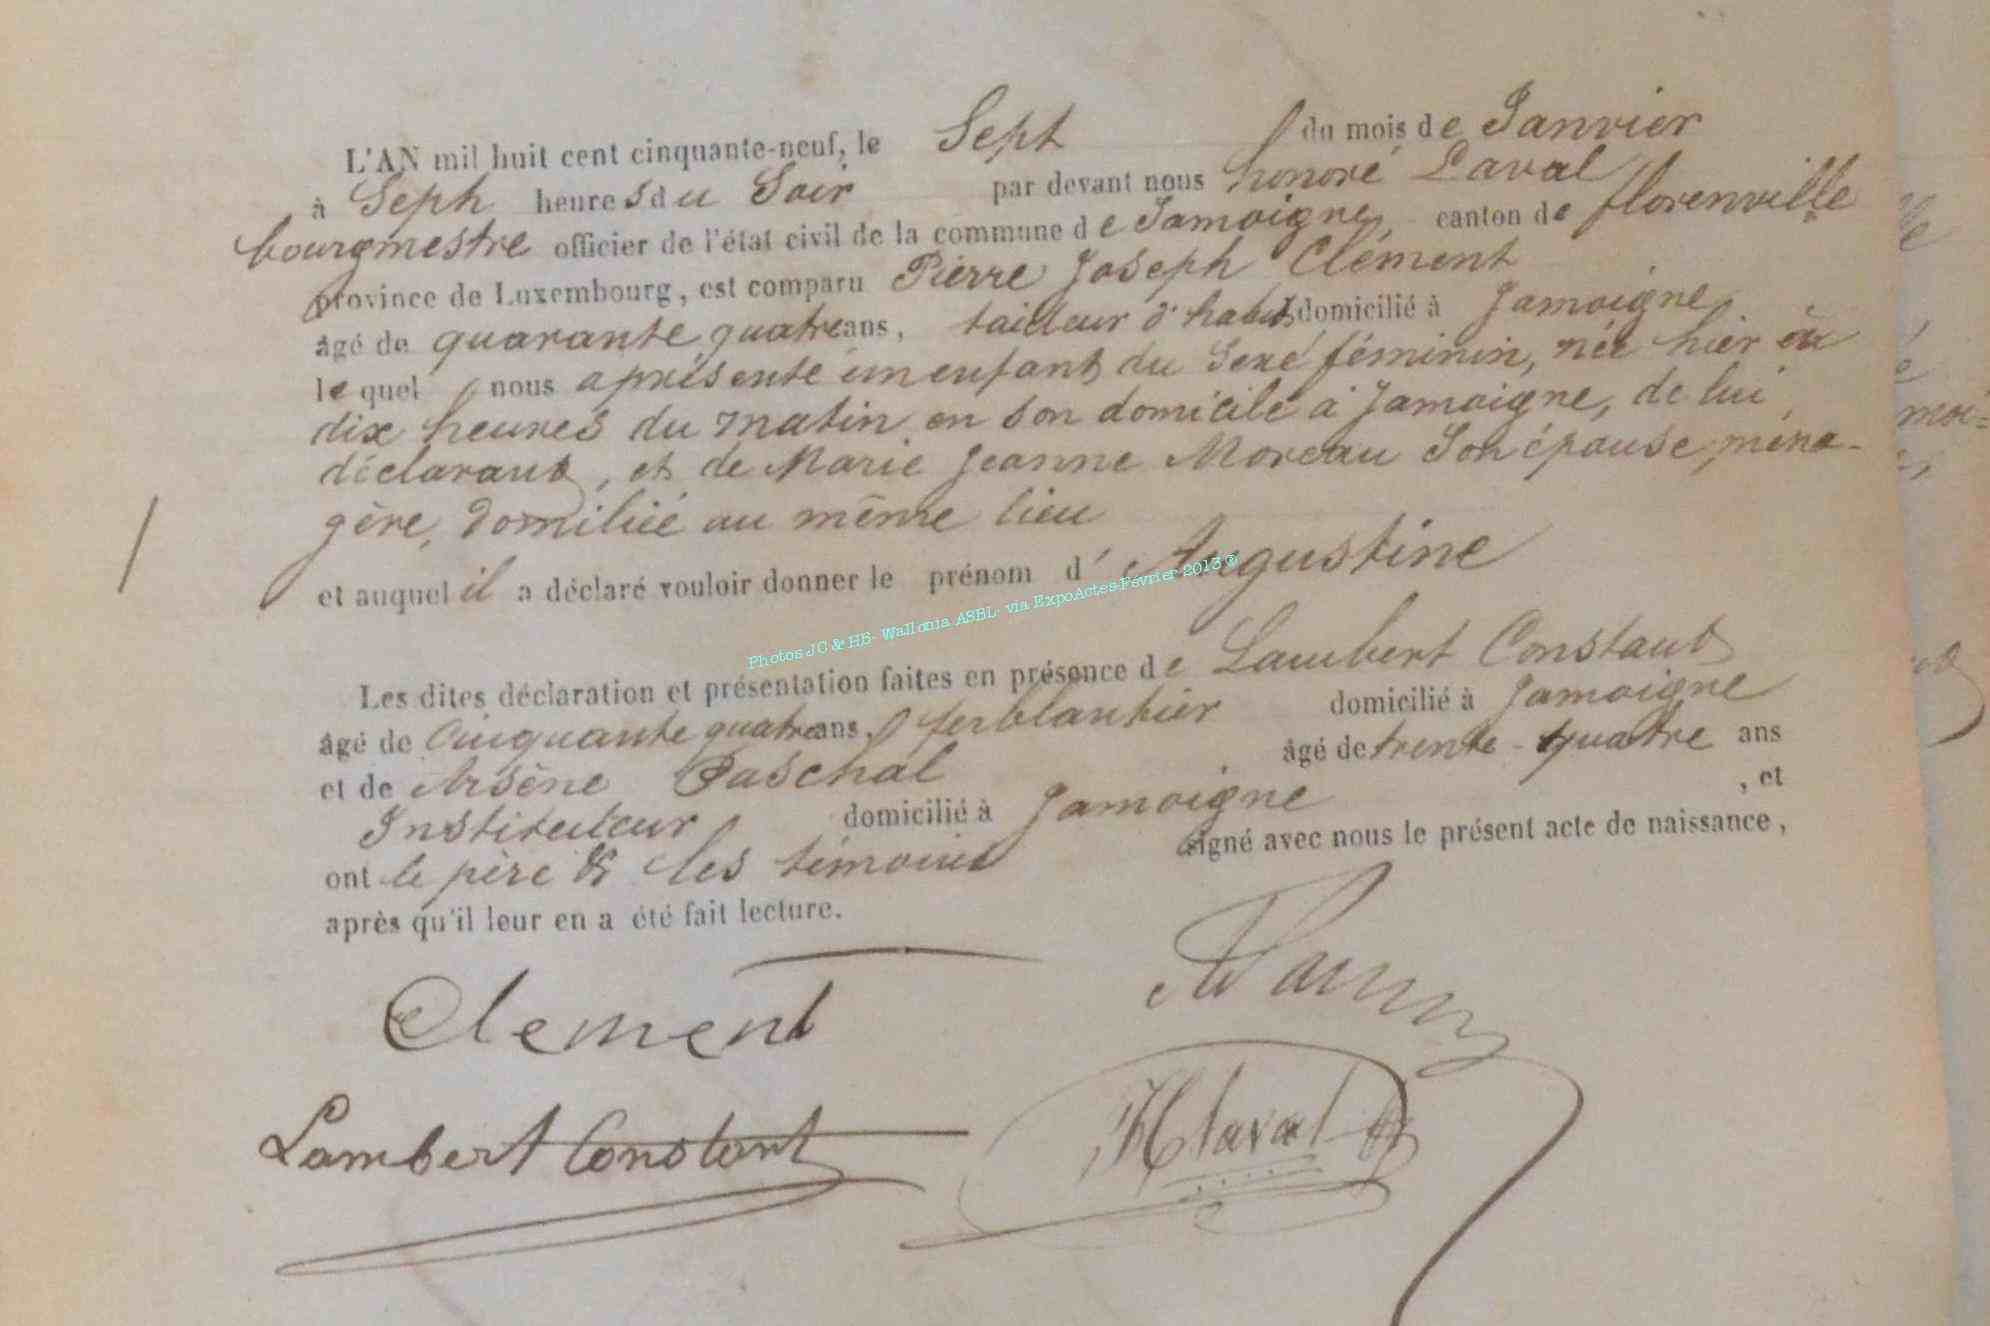 L'AN mil huit cent cinquante-neuf, le Sept du mois de Janvier
à Seph heures du Soir par devant nous honoré Laval
bourgmestre officier de l'état civil de la commune de Jamoigne, canton de florenville
province de Luxembourg, est comparu Pierre Joseph Clément
âgé de quarante quatre ans, tailleur d'habits domicilié à Jamoigne
lequel nous a présenté un enfant du Sexe féminin, née hier à
dix heures du matin en son domicile à Jamoigne, de lui,
déclarant, et de Marie Jeanne Moreau Son épouse, ména-
gère, domiliée au même lieu
et auquel il a déclaré vouloir donner le prénom d'Augustine
Photos JC & HB- Wallonia ASBL- via ExpoActes-Février 2013 ®
Les dites déclaration et présentation faites en présence de Lambert Constant
âgé de Cinquante quatre ans, ferblantier domicilié à Jamoigne
et de Arsène Paschal âgé de trente-quatre ans
Instituteur domicilié à Jamoigne , et
ont le père & les témoins signé avec nous le présent acte de naissance,
après qu'il leur en a été fait lecture.
Clement
Lambert Constant
H Laval